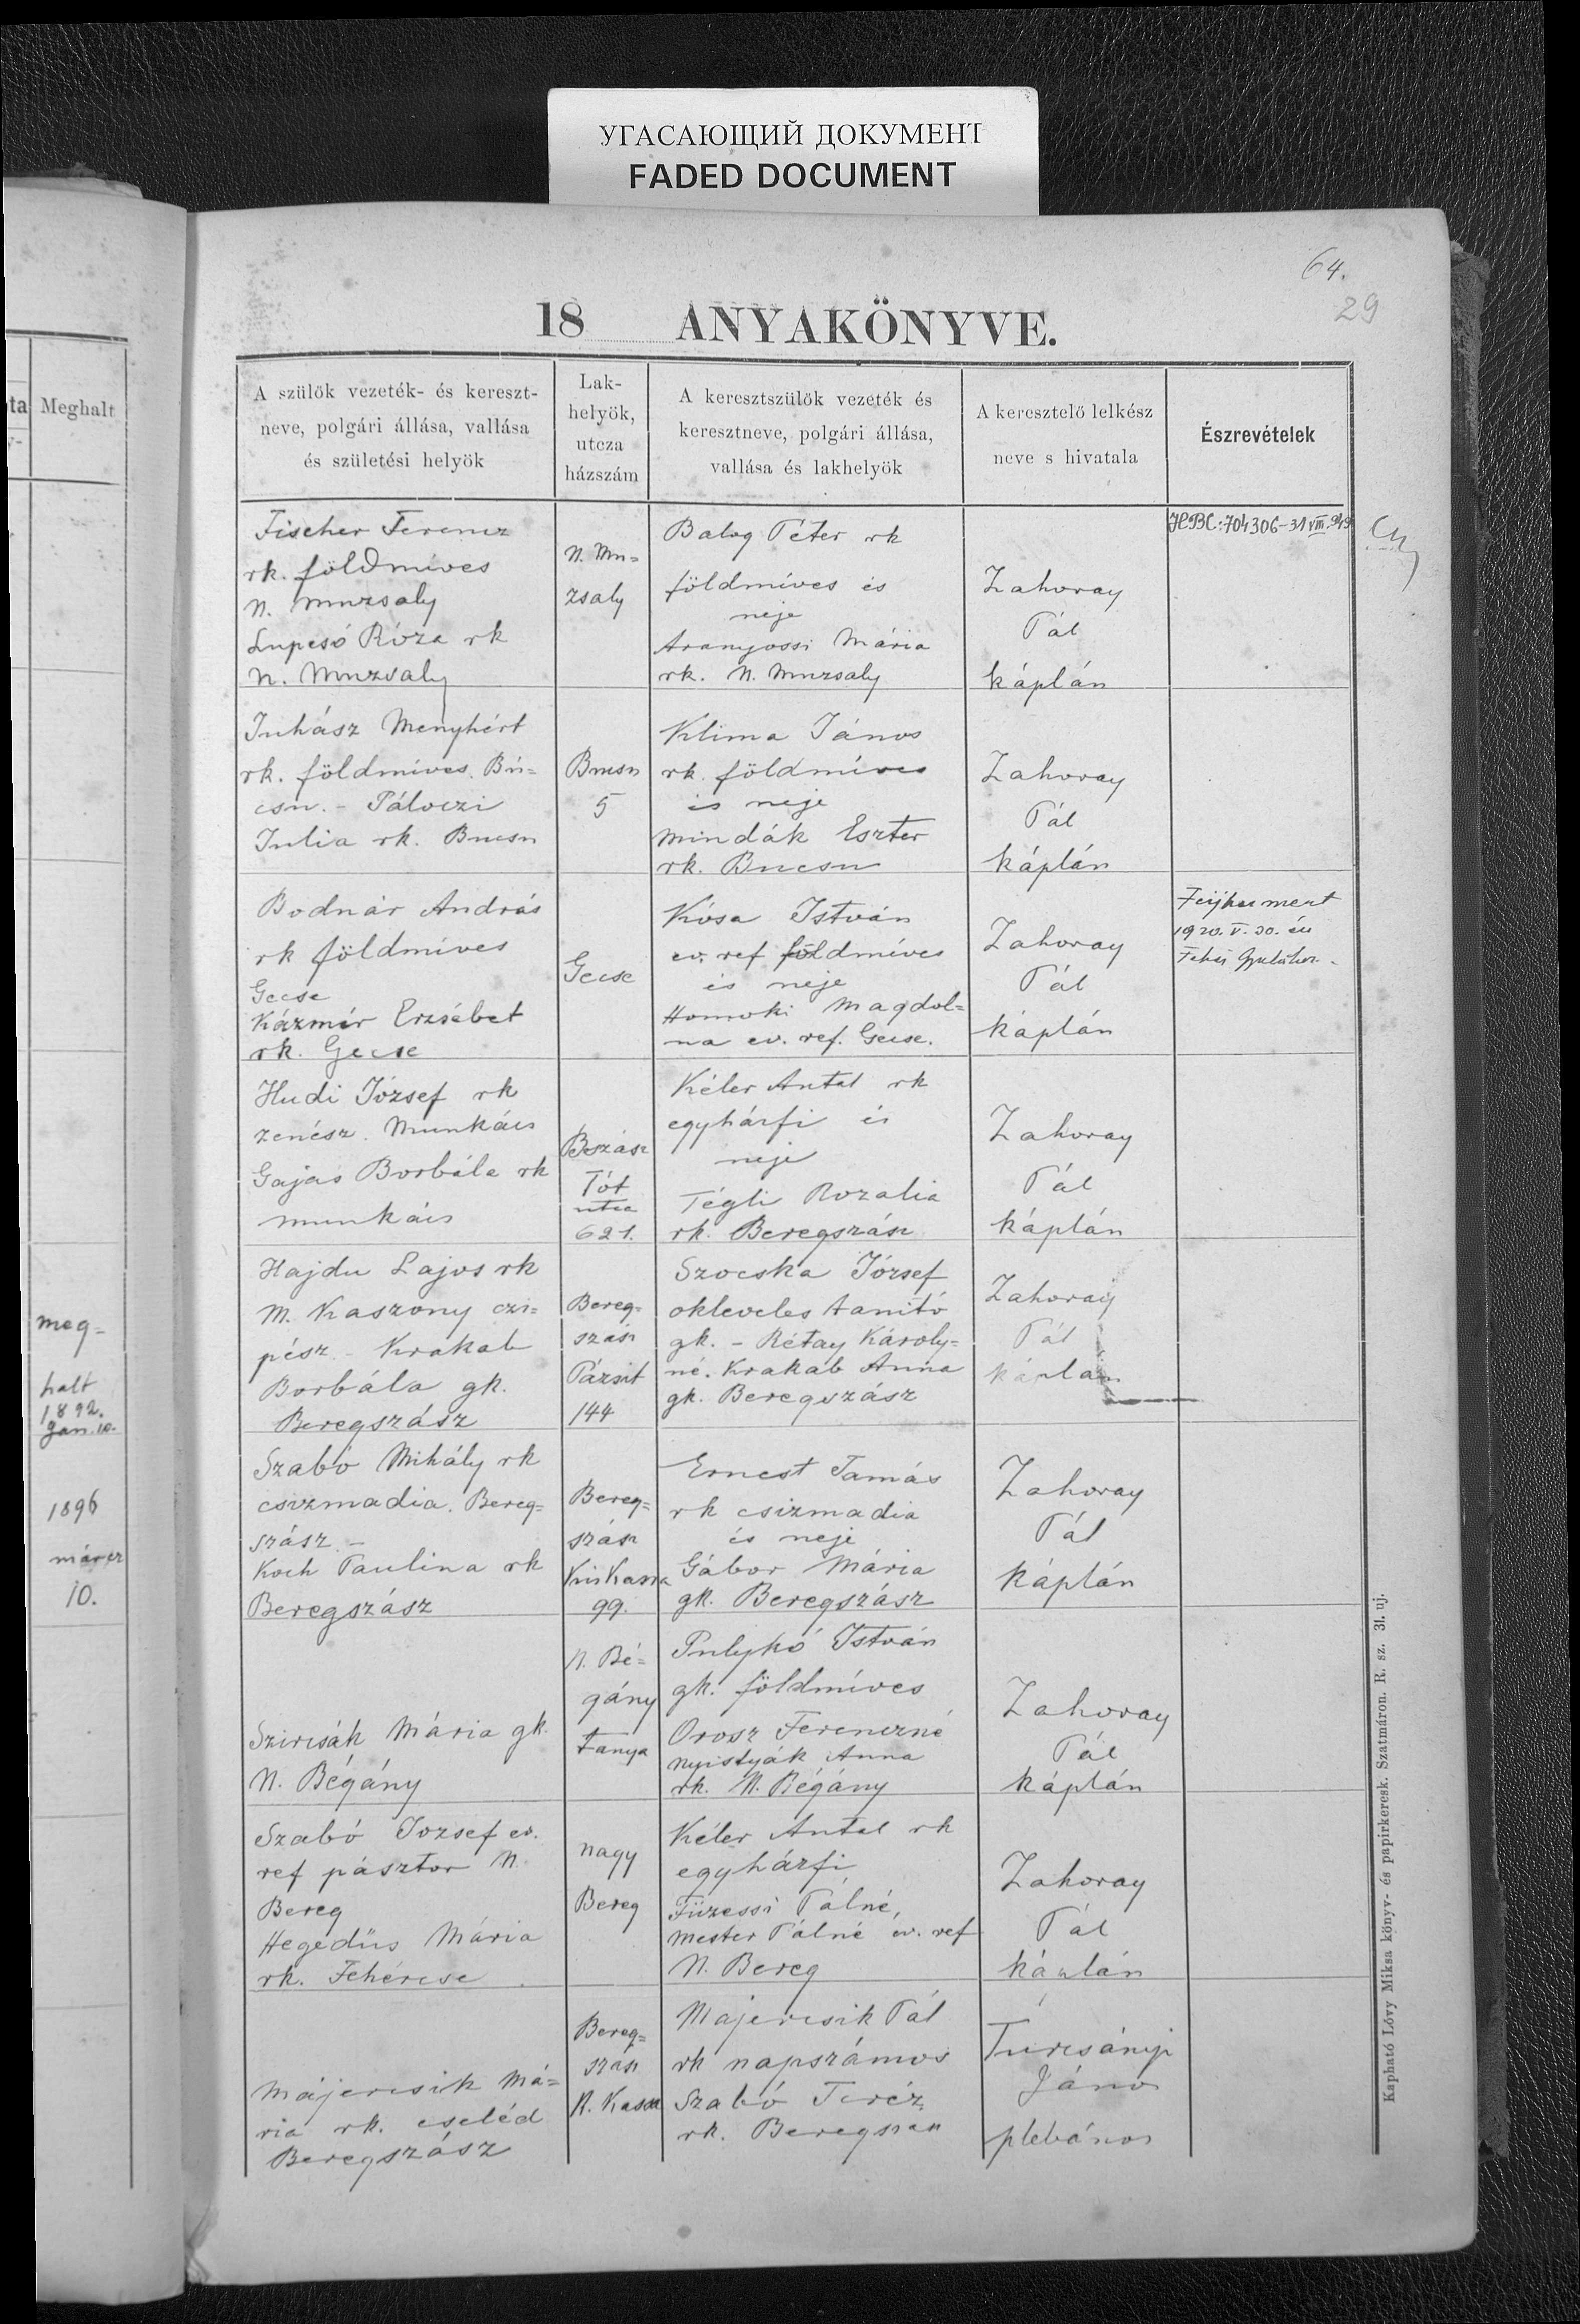 УГАСАЮЩИЙ ДОКУМЕНТ
FADED DOCUMENT
64.
29
18 ANYAKÖNYVE.
ta
Meghalt
meg=
halt
1892.
Jan. 10.
1896
márcz
10.
A szülők vezeték- és kereszt-
neve, polgári állása, vallása
és születési helyök
Lak-
helyök,
utcza
házszám
A keresztszülök vezeték és
keresztneve, polgári állása,
vallása és lakhelyök
A keresztelő lelkész
neve s hivatala
Észrevételek
Fischer Ferencz
rk. földmíves
N. Muzsaly
Lupcsó Róza rk
N. Muzsaly
N. Mu=
zsaly
Balog Péter rk
földmíves és
neje
Aranyossi Mária
rk. N. Muzsaly
Zahoray
Pál
káplán
704306-31 VIII. 949
Juhász Menyhért
rk. földmíves. Bu=
csu. - Pálóczi
Julia rk. Bucsu
Bucsu
5
Klima János
rk. földmíves
és neje
Mindák Eszter
rk. Bucsu
Zahoray
Pál
káplán
Bodnár András
rk földmíves
Gecse
Kázmér Erzsébet
rk. Gecse
Gecse
Kósa István
ev. ref földmíves
és neje
Homoki Magdol=
na ev. ref. Gecse.
Zahoray
Pál
káplán
Férjhez ment
1920. V. 30. án
Fehér Gyulához.
Hudi József rk
zenész. Munkács
Gajas Borbála rk
Munkács
Bszász
Tót
utca
621.
Kéler Antal rk
egyházfi és
neje
Tégli Rozalia
rk. Beregszász
Zahoray
Pál
káplán
Hajdu Lajos rk
M. Kaszony czi=
pész - Krakab
Borbála gk.
Beregszász
Bereg=
szász
Pázsit
144
Szocska József
okleveles tanító
gk. - Rétay Károly=
né. Krakab Anna
gk. Beregszász
Zahoray
Pál
káplán
Szabó Mihály rk
csizmadia. Bereg=
szász. -
Koch Paulina rk
Beregszász
Bereg=
szász
Kis Kaszo
99.
Ernest Tamás
rk csizmadia
és neje
Gábor Mária
gk. Beregszász
Zahoray
Pál
káplán
Szircsák Mária gk.
N. Bégány
N. Bé=
gány
tanya
Pulykó István
gk. földmíves
Orosz Ferenczné
Nyistyák Anna
rk. N. Bégány
Zahoray
Pál
káplán
Szabó József ev.
ref pásztor N.
Bereg
Hegedüs Mária
rk. Fehércse
Nagy
Bereg
Kéler Antal rk
egyházfi
Füzessi Pálné,
Mester Pálné ev. ref
N. Bereg
Zahoray
Pál
káplán
Májercsik Má=
ria rk. cseléd
Beregszász
Bereg=
szász
Majercsik Pál
rk napszámos
Szabó Teréz
rk. Beregszász
Turcsányi
János
plebános
Kapható Lővy Miksa könyv- és papirkeresk. Szatmáron. R. sz. 31. uj.